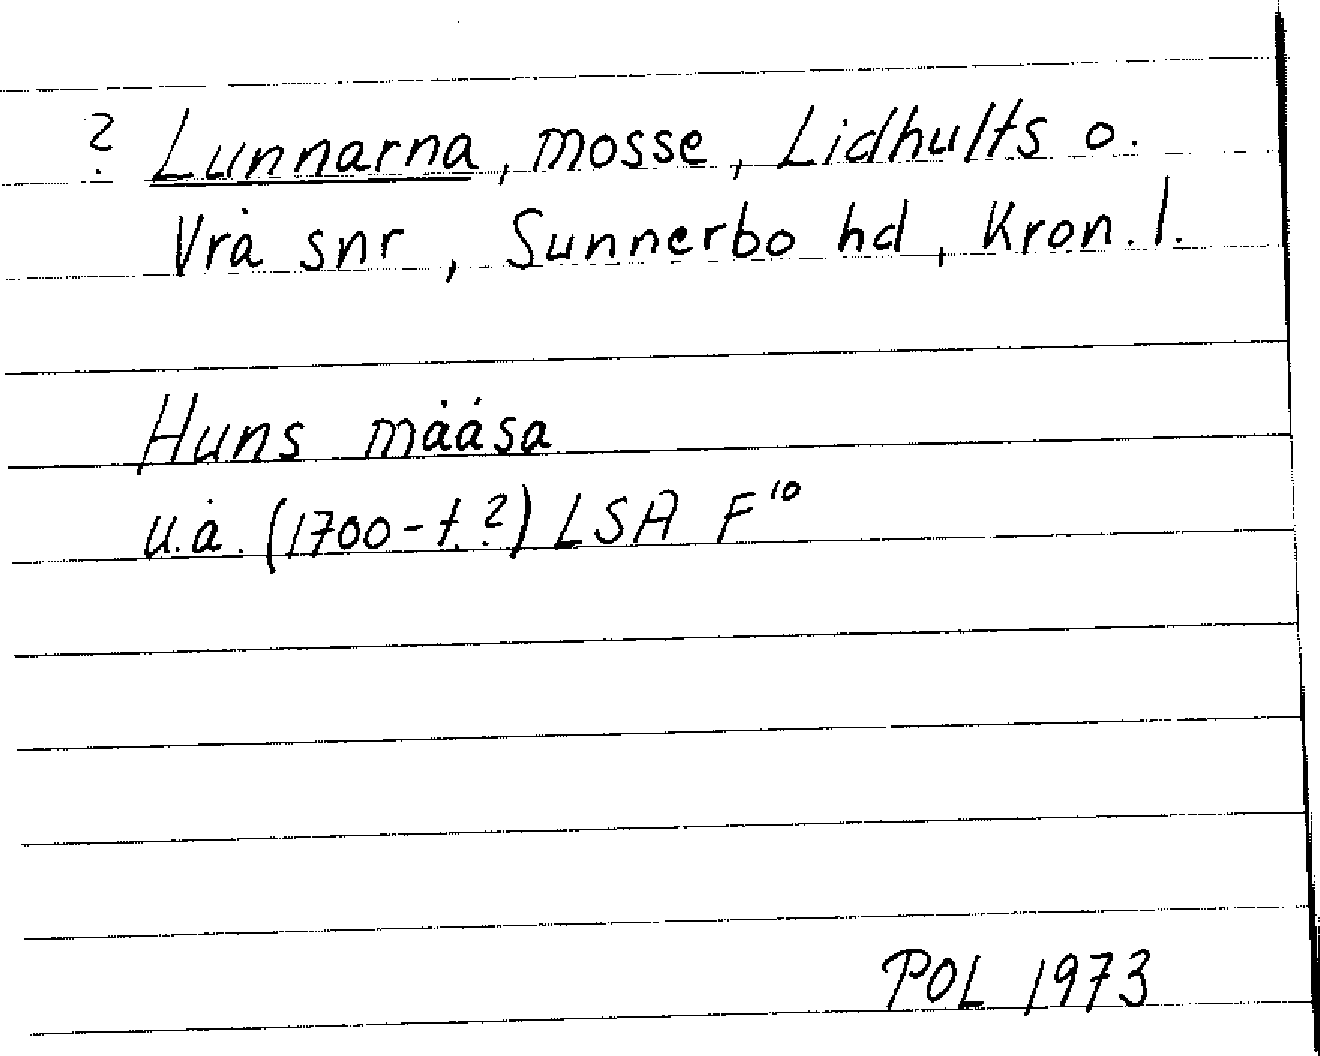 ? Lunnarna, mosse, Lidhults o.
Vrå snr, Sunnerbo hd, Kron. l.
Huns måása
u.å. (1700-t.?) LSA F¹⁰
POL 1973